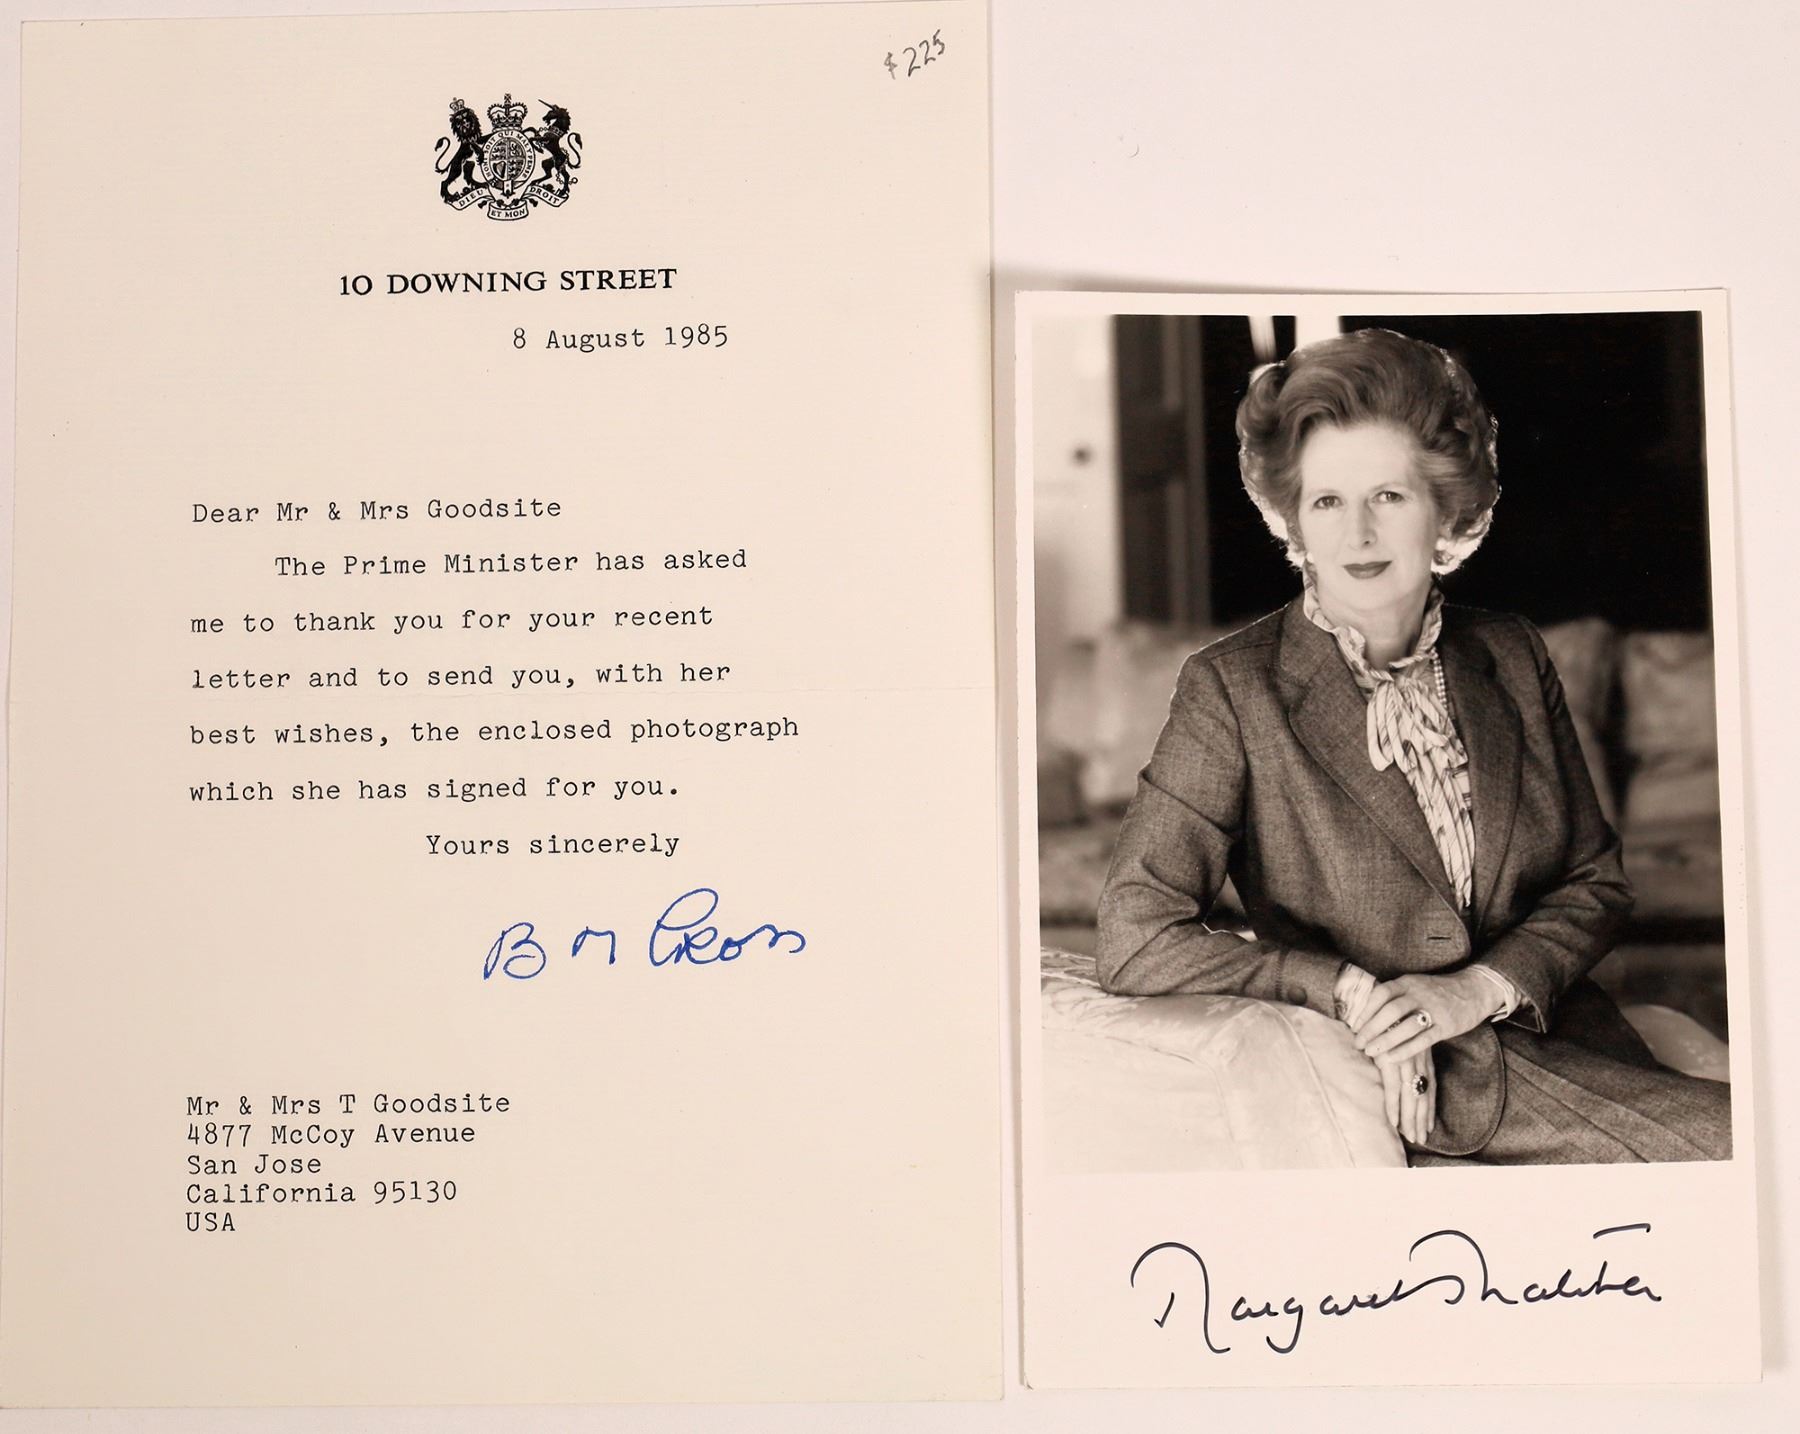 $225
HONI SOIT QUI MAL Y PENSE
DIEU ET MON DROIT
10 DOWNING STREET
8 August 1985
Dear Mr & Mrs Goodsite
The Prime Minister has asked
me to thank you for your recent
letter and to send you, with her
best wishes, the enclosed photograph
which she has signed for you.
Yours sincerely
B M Cross
Mr & Mrs T Goodsite
4877 McCoy Avenue
San Jose
California 95130
USA
Margaret Thatcher